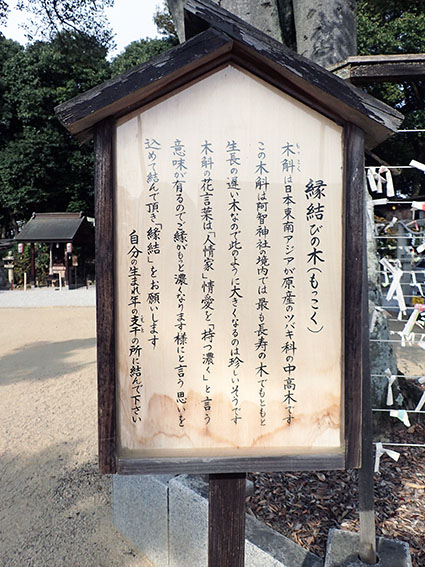 縁結びの木(もっこく)
木斛は日本東南アジアが原産のツバキ科の中高木です
もっこく
この木斛は阿智神社の境内では最も長寿の木でもともと
生長の遅い木なので此のように大きくなるのは珍しいそうです
木斛の花言葉は「人情家」「情愛」を「持つ濃く」と言う
意味が有るのでご縁がもっと濃くなります様にと言う思いを
込めて結んで頂き「縁結」をお願いします
自分の生まれ年の支干の所に結んで下さい
えと